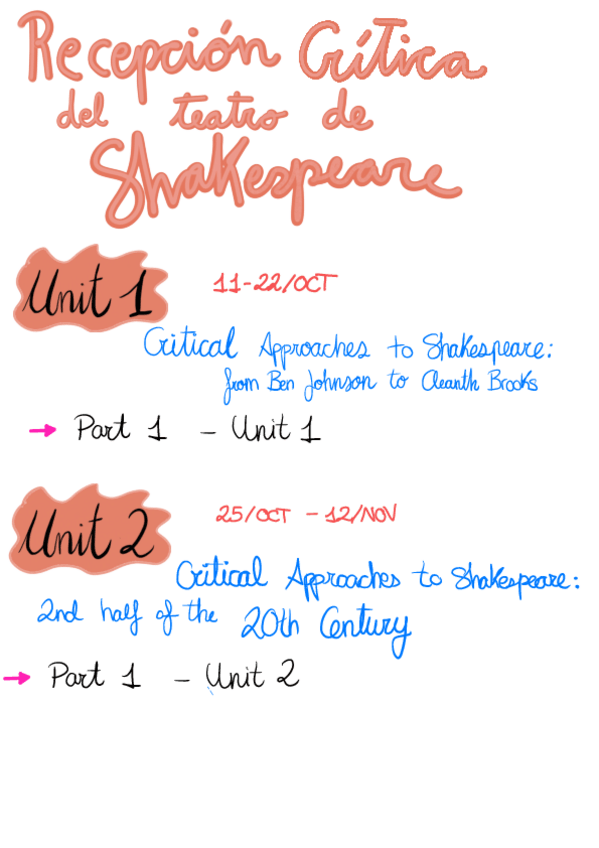 Recepción Crítica
del teatro de
Shakespeare
Unit 1
11-22/OCT
Critical Approaches to Shakespeare:
from Ben Johnson to Cleanth Brooks
→ Part 1 - Unit 1
Unit 2
25/OCT - 12/NOV
Critical Approaches to Shakespeare:
2nd half of the 20th Century
→ Part 1 - Unit 2